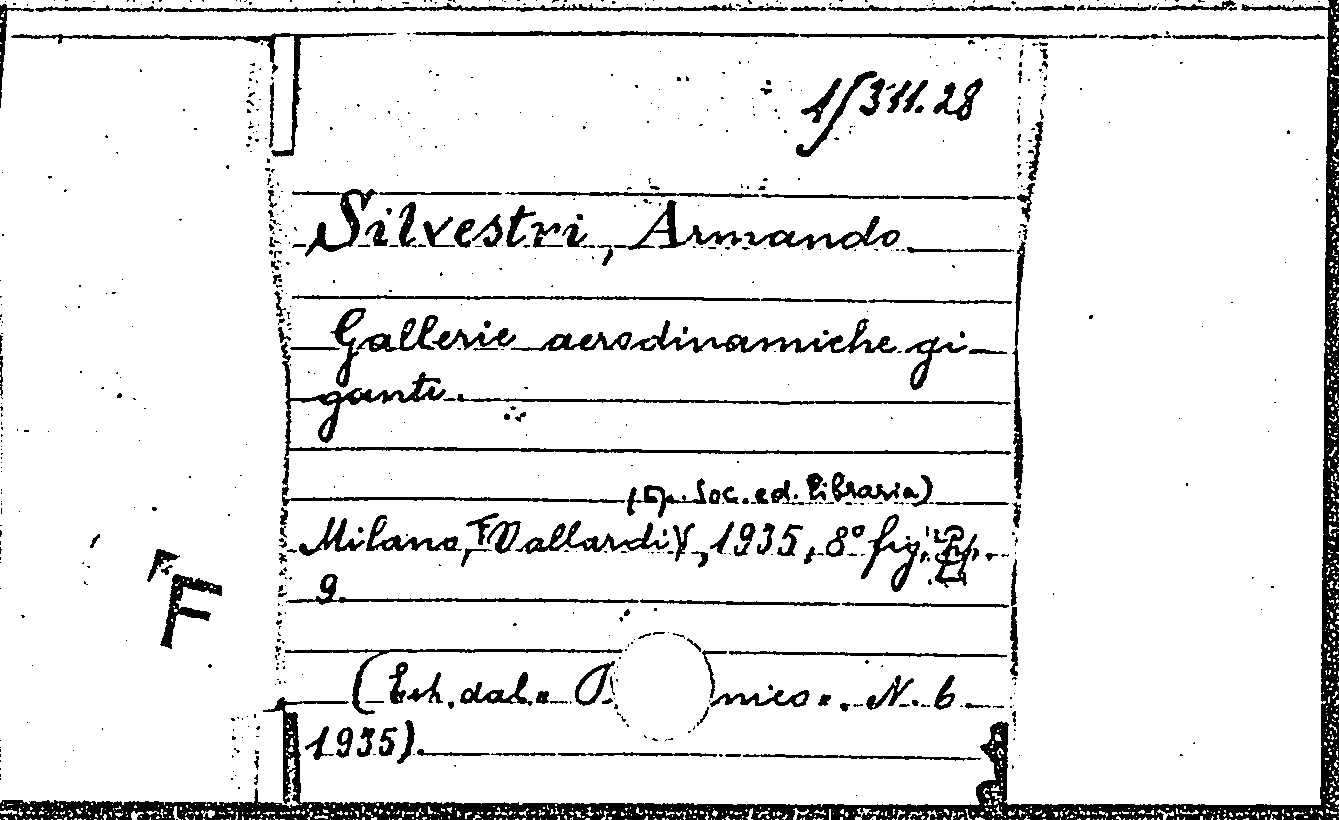 1/311.28
Silvestri, Armando
Gallerie aerodinamiche gi-
ganti.
(Tip. Soc. ed. Libraria)
Milano, F. Vallardi, 1935, 8° fig. pp.
9.
(Estr. dal « mico ». N. 6
1935).
F